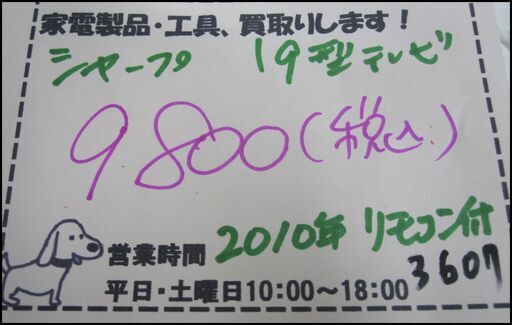 家電製品・工具、買取りします！
シャープ 19型テレビ
9800(税込)
2010年 リモコン付
営業時間
3607
平日・土曜日10:00～18:00